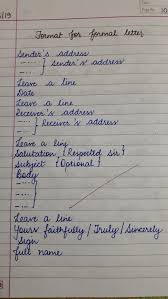 /19
Format for formal letter
Sender's address
---- } Sender's address
----
Leave a line
Date
Leave a line
Receiver's address
---- } Receiver's address
----
Leave a line
Salutation (Respected sir)
Subject (Optional)
Body
----
----
Leave a line
Yours faithfully / Truly / Sincerely
Sign
full name